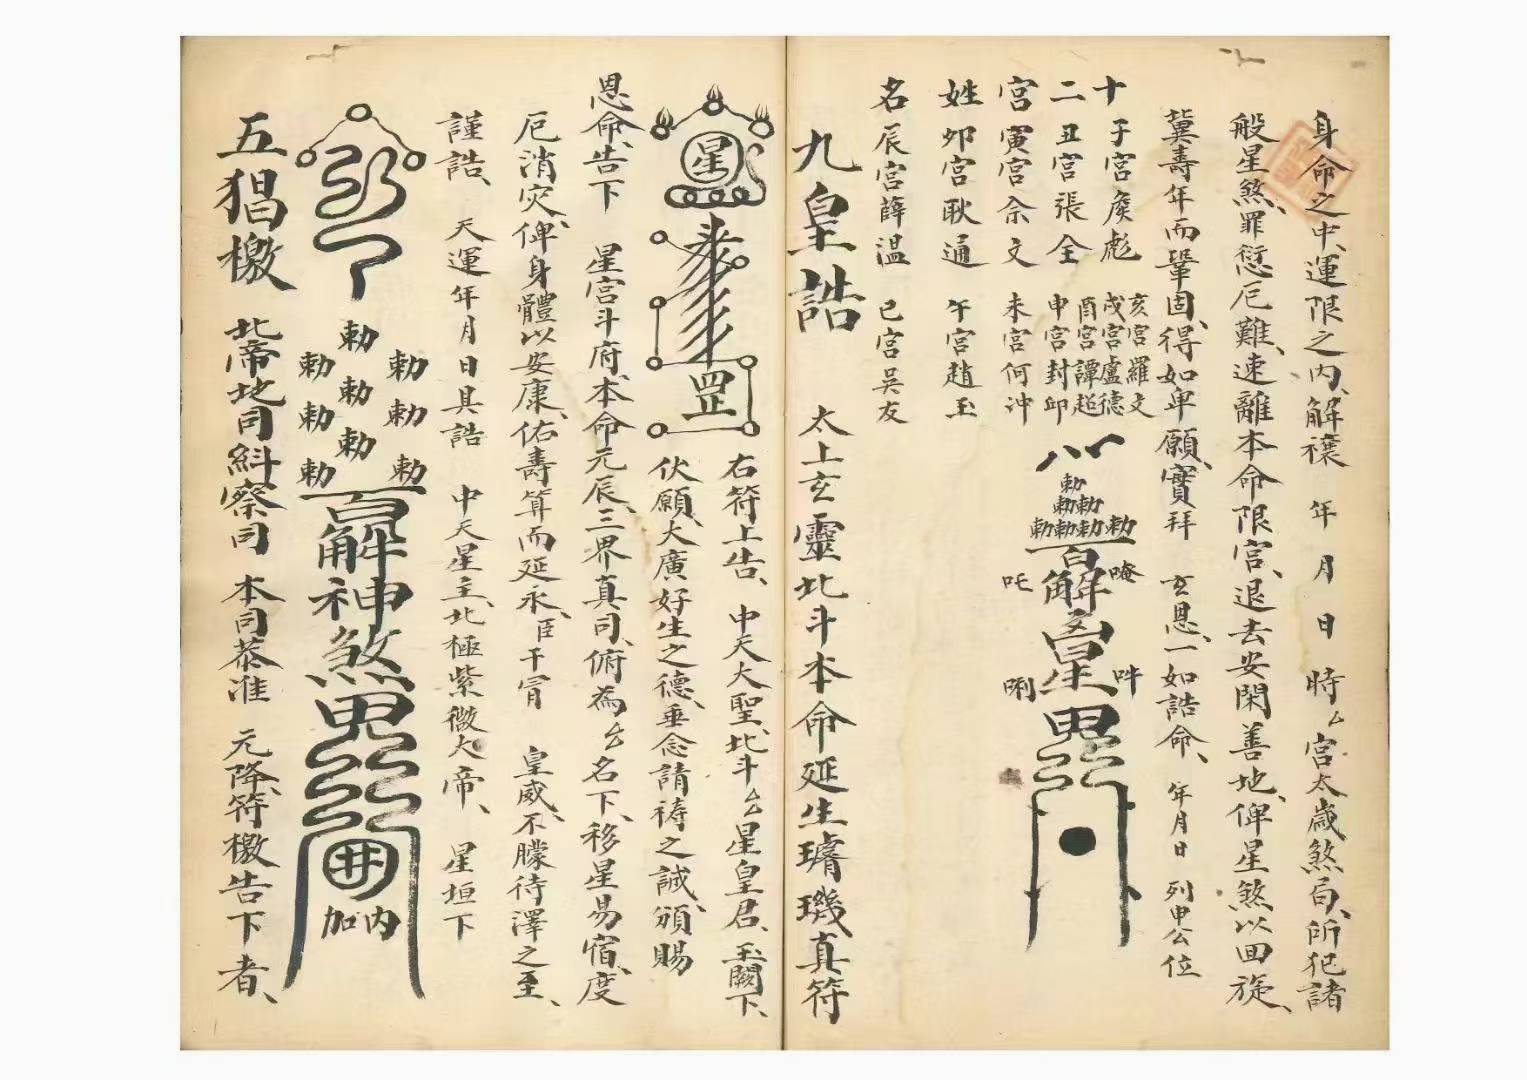 身命之中、運限之內、解禳　年　月　日　時厶宮太歲煞局、所犯諸
般星煞、罪愆厄難、速離本命限宮、退去安閑善地、俾星煞以回旋、
冀壽年而鞏固、得如卑願、實拜　玄恩、一如誥命、　年月日　列申公位
十二宮姓名
子宮侯彪
丑宮張全
寅宮佘文
卯宮耿通
辰宮薛溫
巳宮吳友
午宮趙玉
未宮何沖
申宮封卯
酉宮譚超
戌宮盧德
亥宮羅文
勅
勅勅
勅勅勅勅
唵　吽
吒　唎
百解
星
九皇誥　太上玄靈北斗本命延生璿璣真符
星
罡
右符上告、　中天大聖、北斗厶星皇君、玉闕下、
伏願、大廣好生之德、垂念請禱之誠、頒賜
恩命、告下　星宮斗府、本命元辰、三界真司、俯為厶名下、移星易宿、度
厄消灾、俾身體以安康、佑壽算而延永、臣干冒　皇威、不朦待澤之至、
謹誥、　天運年月日具誥　中天星主、北極紫微大帝、　星垣下
勅
勅　勅
勅
勅　勅
勅
勅　勅
百解神煞
內加
五猖檄　北帝地司糾察司　本司恭准　元降、符檄告下者、